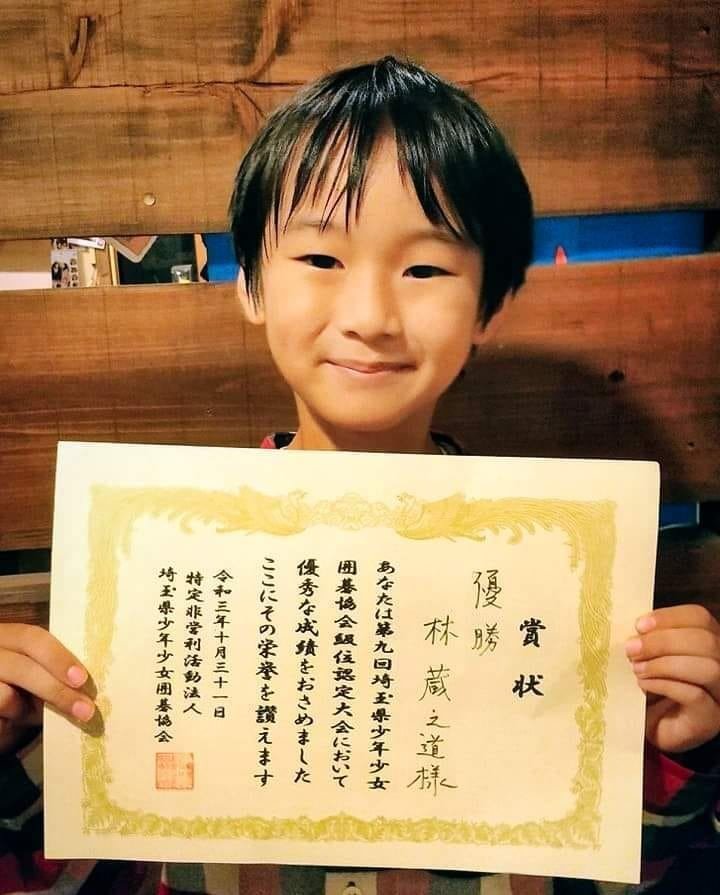 賞状
優勝
林蔵之道様
あなたは第九回埼玉県少年少女
囲碁協会級位認定大会において
優秀な成績をおさめました
ここにその栄誉を讃えます
令和三年十月三十一日
特定非営利活動法人
埼玉県少年少女囲碁協会